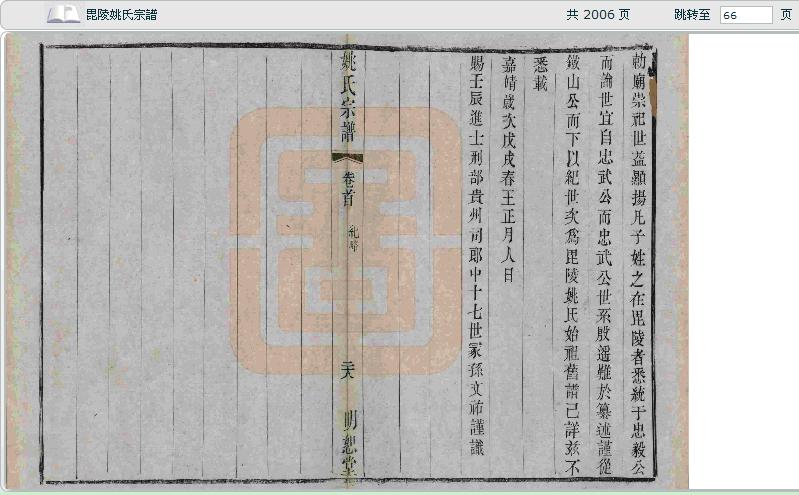 毘陵姚氏宗譜
共 2006 页
跳转至 66 页
勅廟崇祀世益顯揚凡子姓之在毘陵者悉統于忠毅公
而論世宜自忠武公而忠武公世系殷遥難於纂述謹從
鐵山公而下以紀世次為毘陵姚氏始祖舊譜已詳茲不
悉載
嘉靖歲次戊戌春王正月人日
賜壬辰進士刑部貴州司郎中十七世冡孫文祐謹識
姚氏宗譜
卷首
明恕堂